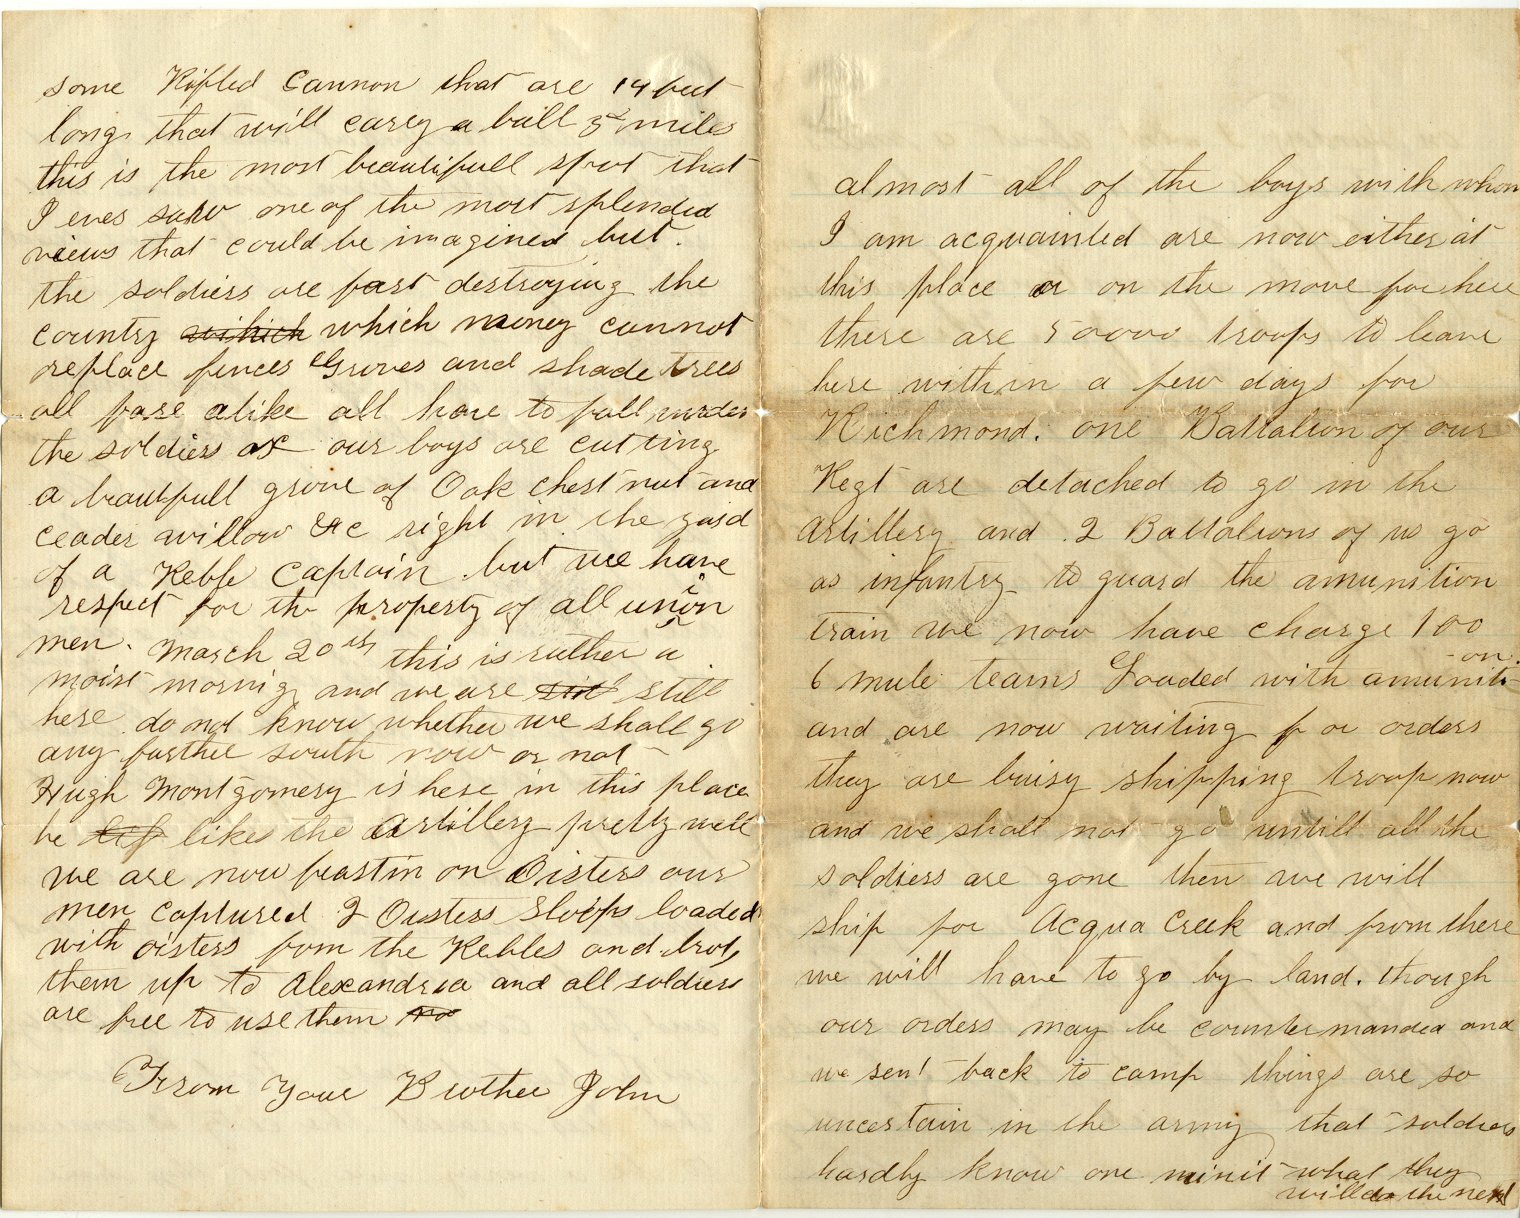 some Rifled Cannon that are 14 feet
long that will carry a ball 5 miles
this is the most beautifull spot that
I ever saw one of the most splended
views that could be imagined but.
the soldiers are fast destroying the
country which which money cannot
replace fences Groves and shade trees
all fare alike all have to fall under
the soldiers ax our boys are cutting
a beautfull grove of Oak chestnut and
ceader willow &c right in the yard
of a Rebble Captain but we have
respect for the property of all union
men. March 20th this is rather a
moist mornig and we are still
here do not know whether we shall go
any farther south now or not
Hugh Montgomery is here in this place
he likes the Artillery pretty well
we are now feastin on Oisters our
men captured 2 Oisters Sloops loaded
with oisters fom the Rebles and brot
them up to Alexandria and all soldiers
are free to use them no
From Your Brother John
almost all of the boys with whom
I am acquainted are now either at
this place or on the move for here
there are 50000 troops to leave
here within a few days for
Richmond. one Battalion of our
Regt are detached to go in the
Artillery and 2 Battalions of us go
as infantry to guard the amunition
train we now have charge 100
6 mule teams Loaded with amunition
and are now waiting for orders
they are buisy shipping troop now
and we shall not go untill all the
soldiers are gone then we will
ship for Acqua Creek and from there
we will have to go by land. though
our orders may be countermanded and
we sent back to camp things are so
uncertain in the army that soldiers
hardly know one minit what they
will do the next